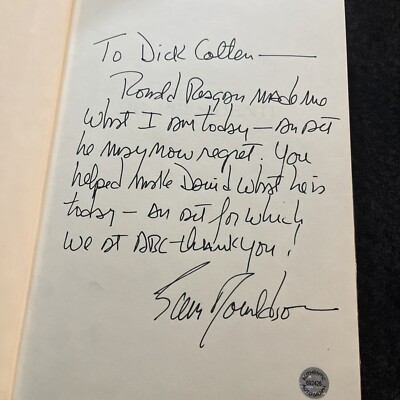 To Dick Cotten —
Ronald Reagan made me
what I am today — an act
he may now regret. You
helped make David what he is
today — an act for which
we at ABC thank you!
Sam Donaldson
AUTHENTIC
692426
AUTOGRAPH